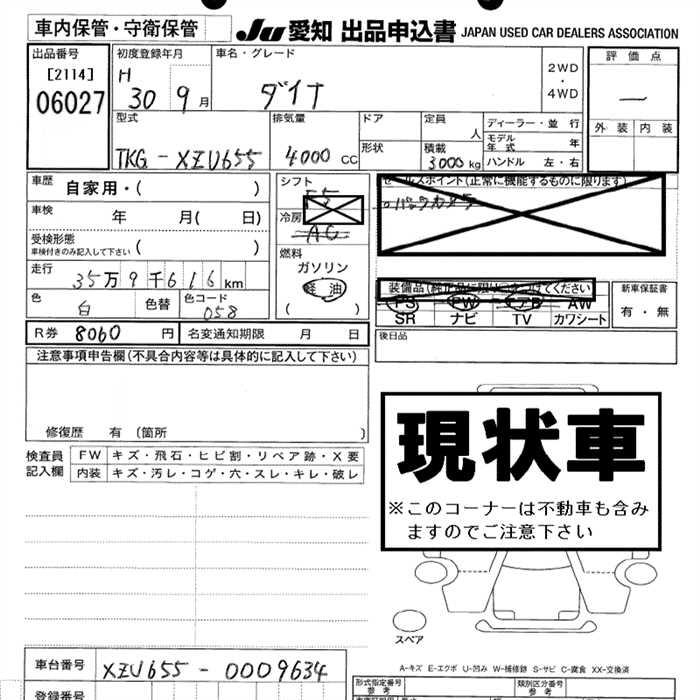 車内保管・守衛保管
JU 愛知 出品申込書 JAPAN USED CAR DEALERS ASSOCIATION
出品番号
[2114]
06027
初度登録年月
H 30 9月
車名・グレード
ダイナ
2WD
・
4WD
評価点
一
外装 内装
型式
TKG-XZU655
排気量
4000 CC
ドア
形状
定員
人
積載
3000 kg
ディーラー・並行
モデル年式 年
ハンドル 左・右
車歴 自家用・( )
車検 年 月( 日)
受検形態
車検付きのみ記入して下さい ( )
走行 35万9千616km
色 白 色替 色コード 058
R券 8060円 名変通知期限 月 日
シフト
F5
冷房
AC
燃料
ガソリン
軽油
( )
セールスポイント(正常に機能するものに限ります)
バックカメラ
装備品(純正品に限り○をつけてください)
PS PW エアB AW
SR ナビ TV カワシート
新車保証書
有・無
後日品
注意事項申告欄(不具合内容等は具体的に記入して下さい)
修復歴 有 〔箇所 〕
検査員記入欄
FW キズ・飛石・ヒビ割・リペア跡・X要
内装 キズ・汚レ・コゲ・穴・スレ・キレ・破レ
現状車
※このコーナーは不動車も含みますのでご注意下さい
スペア
A-キズ E-エクボ U-凹み W-補修跡 S-サビ C-腐食 XX-交換済
車台番号 XZU655-0009634
登録番号
形式指定番号
参考
類別区分番号
参考